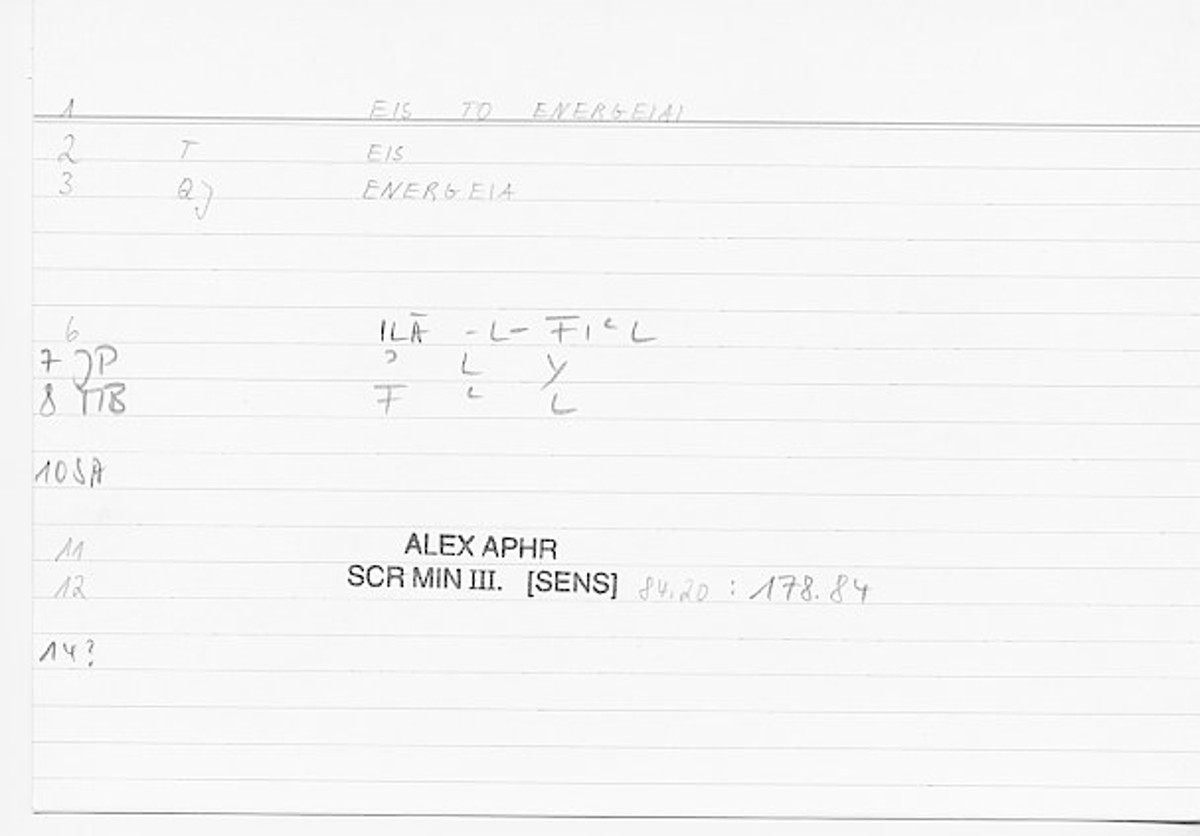 1 EIS TO ENERGEIAI
2 T EIS
3 Qj ENERGEIA
6 ILĀ -L- FIʿL
7 JP ʾ L Y
8 TTB F ʿ L
10 SA
11 ALEX APHR
12 SCR MIN III. [SENS] 84.20 : 178.84
14?